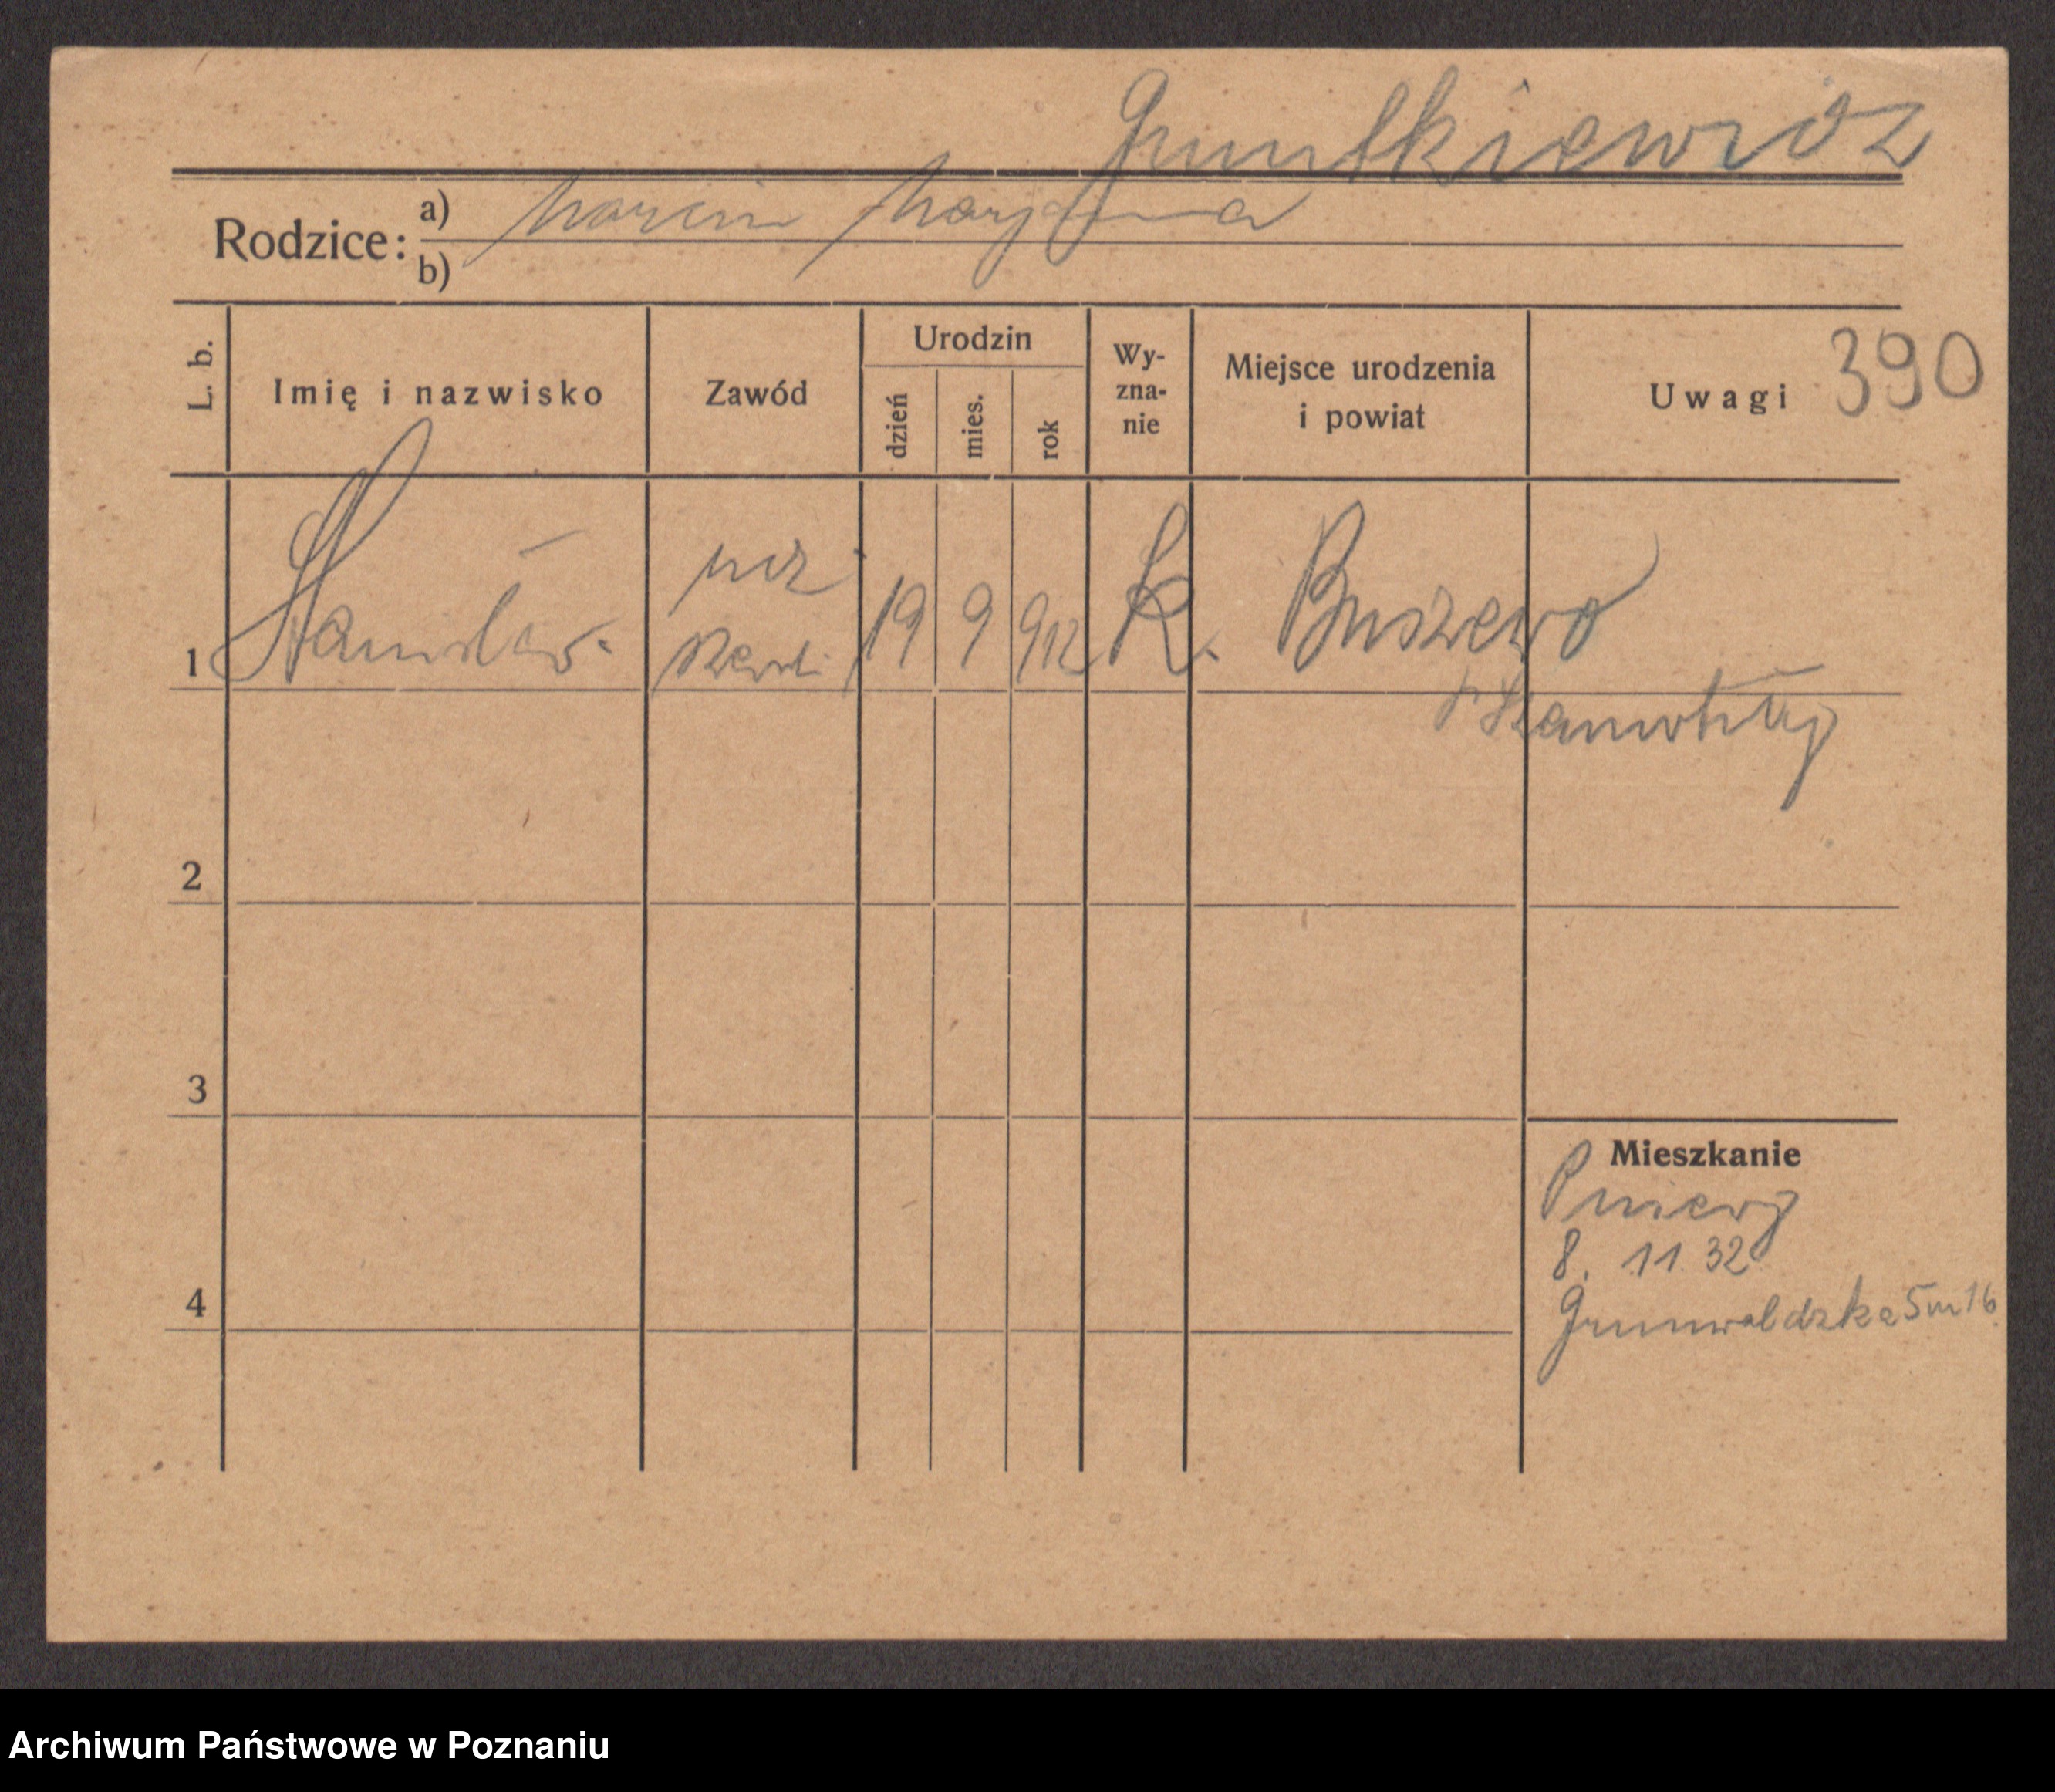 Gruntkiewicz
Rodzice:
a) Marcin Magdalena
b)
L. b.
Imię i nazwisko
Zawód
Urodzin
dzień
mies.
rok
Wy-
zna-
nie
Miejsce urodzenia
i powiat
Uwagi
390
1 Stanisław 19 9 912 K. Buszewo
Szamotuły
2
3
4
Mieszkanie
Pniewy
8. 11 32
Grunwaldzka 5 m 16
Archiwum Państwowe w Poznaniu